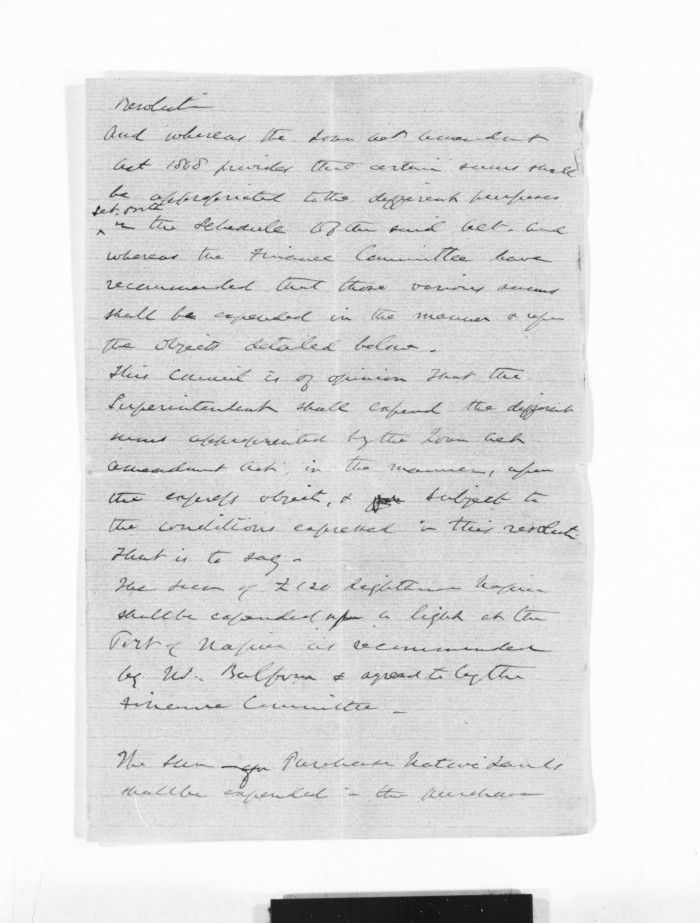 Resolution
And whereas the Loan Act Amendment
Act 1868 provides that certain sums shall
be appropriated to the different purposes
set forth
in the Schedule to the said Act. And
whereas the Finance Committee have
recommended that those various sums
shall be expended in the manner & upon
the objects detailed below.
This Council is of opinion that the
Superintendent shall expend the different
sums appropriated by the Loan Act
Amendment Act, in the manner, upon
the express objects, & subject to
the conditions expressed in this resolution
That is to say -
The sum of £120 Lighthouse Napier
shall be expended upon a light at the
Port of Napier as recommended
by Mr. Balfour & agreed to by the
Finance Committee -
The Sum Purchase Native Lands
shall be expended in the purchase